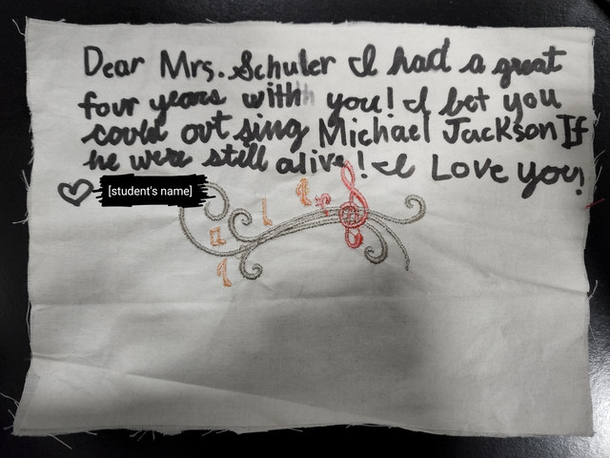 Dear Mrs. Schuler I had a great
four years with you! I bet you
could out sing Michael Jackson If
he were still alive! I Love you!
[student's name]